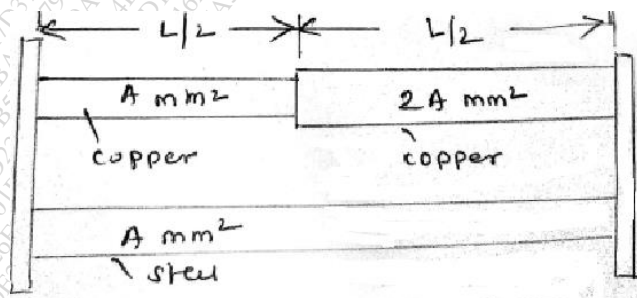 L/2 L/2
A mm2 2A mm2
copper copper
A mm2
steel